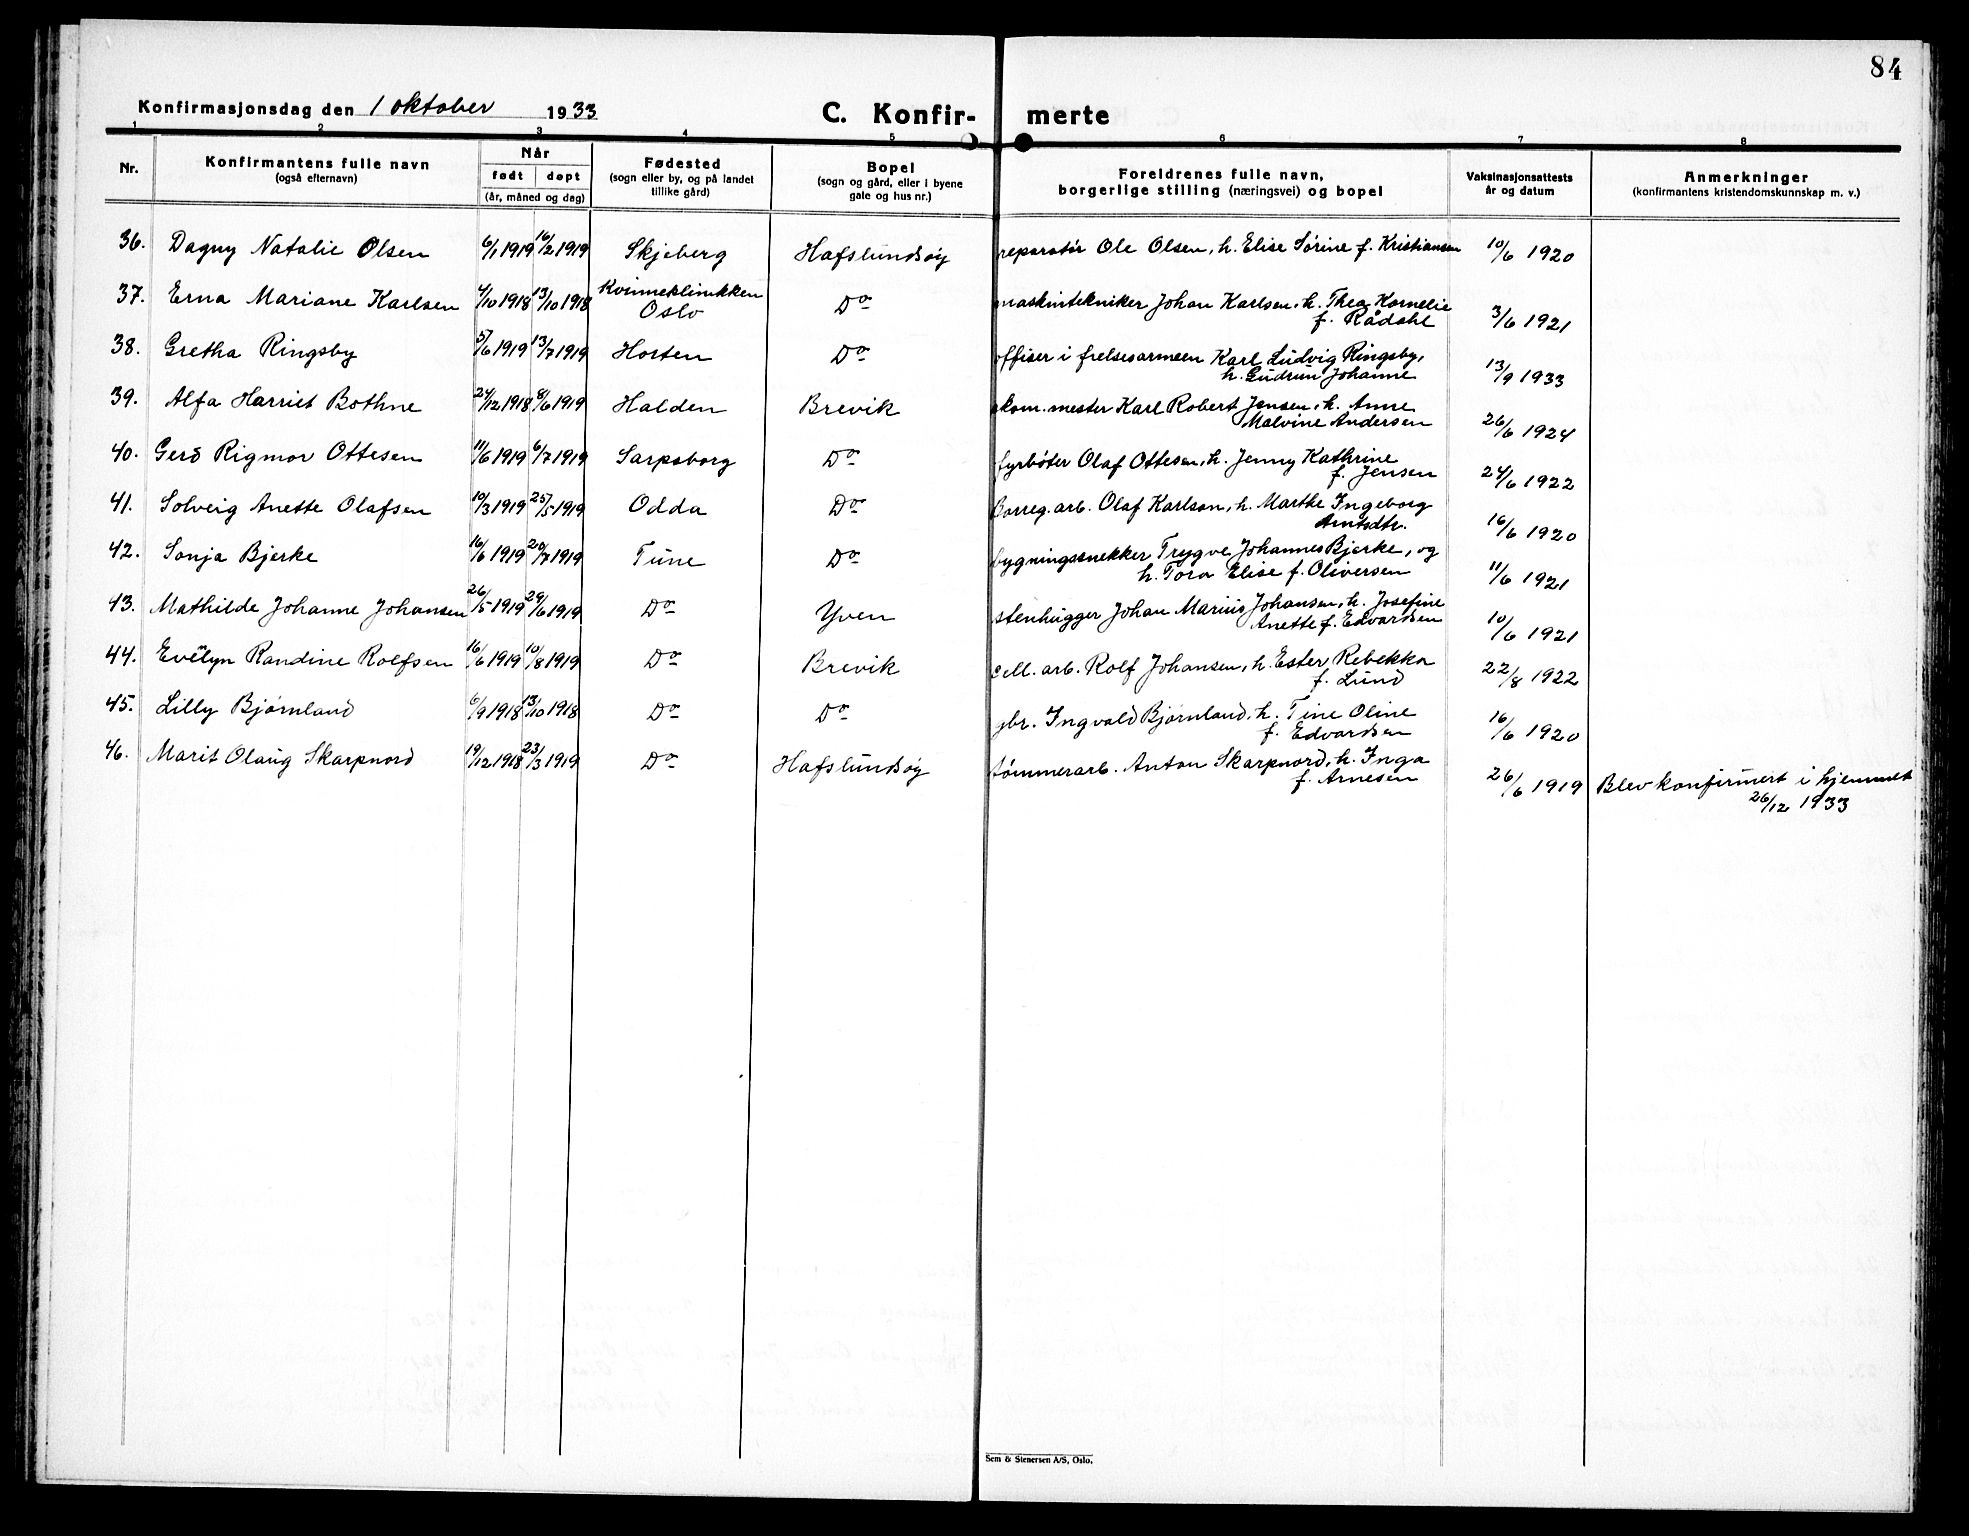 84
Konfirmasjonsdag den 1 oktober 1933 C. Konfir- merte
1 2 3 4 5 6 7 8
Nr. Konfirmantens fulle navn (også efternavn) Når født døpt (år, måned og dag) Fødested (sogn eller by, og på landet tillike gård) Bopel (sogn og gård, eller i byene gate og hus nr.) Foreldrenes fulle navn, borgerlige stilling (næringsvei) og bopel Vaksinasjonsattests år og datum Anmerkninger (konfirmantens kristendomskunnskap m. v.)
36. Dagny Natalie Olsen 6/1 1919 16/2 1919 Skjeberg Hafslundsøy reparatør Ole Olsen, h. Elise Sørine f. Kristiansen 10/6 1920
37. Erna Mariane Karlsen 4/10 1918 13/10 1918 Kvinneklinikken Oslo Do maskintekniker Johan Karlsen, h. Thea Kornelie
f. Rådahl 3/6 1921
38. Gretha Ringsby 5/6 1919 13/7 1919 Horten Do offiser i frelsesarmeen Karl Ludvig Ringsby,
h. Gudrun Johanne 13/9 1933
39. Alfa Harriet Bothne 24/12 1918 8/6 1919 Halden Brevik skom. mester Karl Robert Jensen, h. Anne
Malvine Andersen 26/6 1924
40. Gerd Rigmor Ottesen 11/6 1919 6/7 1919 Sarpsborg Do fyrbøter Olaf Ottesen, h. Jenny Kathrine
f. Jensen 24/6 1922
41. Solveig Anette Olafsen 10/3 1919 25/5 1919 Odda Do Borreg. arb. Olaf Karlson, h. Marthe Ingeborg
Arntsdtr. 16/6 1920
42. Sonja Bjerke 16/6 1919 20/7 1919 Tune Do bygningssnekker Trygve Johannes Bjerke, og
h. Tora Elise f. Oliversen 11/6 1921
43. Mathilde Johanne Johansen 26/5 1919 29/6 1919 Do Yven stenhugger Johan Marius Johansen, h. Josefine
Anette f. Edvardsen 10/6 1921
44. Evelyn Randine Rolfsen 16/6 1919 10/8 1919 Do Brevik cell. arb. Rolf Johansen, h. Ester Rebekka
f. Lund 22/8 1922
45. Lilly Bjørnland 6/9 1918 13/10 1918 Do Do gbr. Ingvald Bjørnland, h. Tine Oline
f. Edvardsen 16/6 1920
46. Marit Olaug Skarpnord 19/12 1918 23/3 1919 Do Hafslundsøy tømmerarb. Anton Skarpnord, h. Inga
f. Arnesen 26/6 1919 Blev konfirmert i hjemmet
26/12 1933
Sem & Stenersen A/S, Oslo.